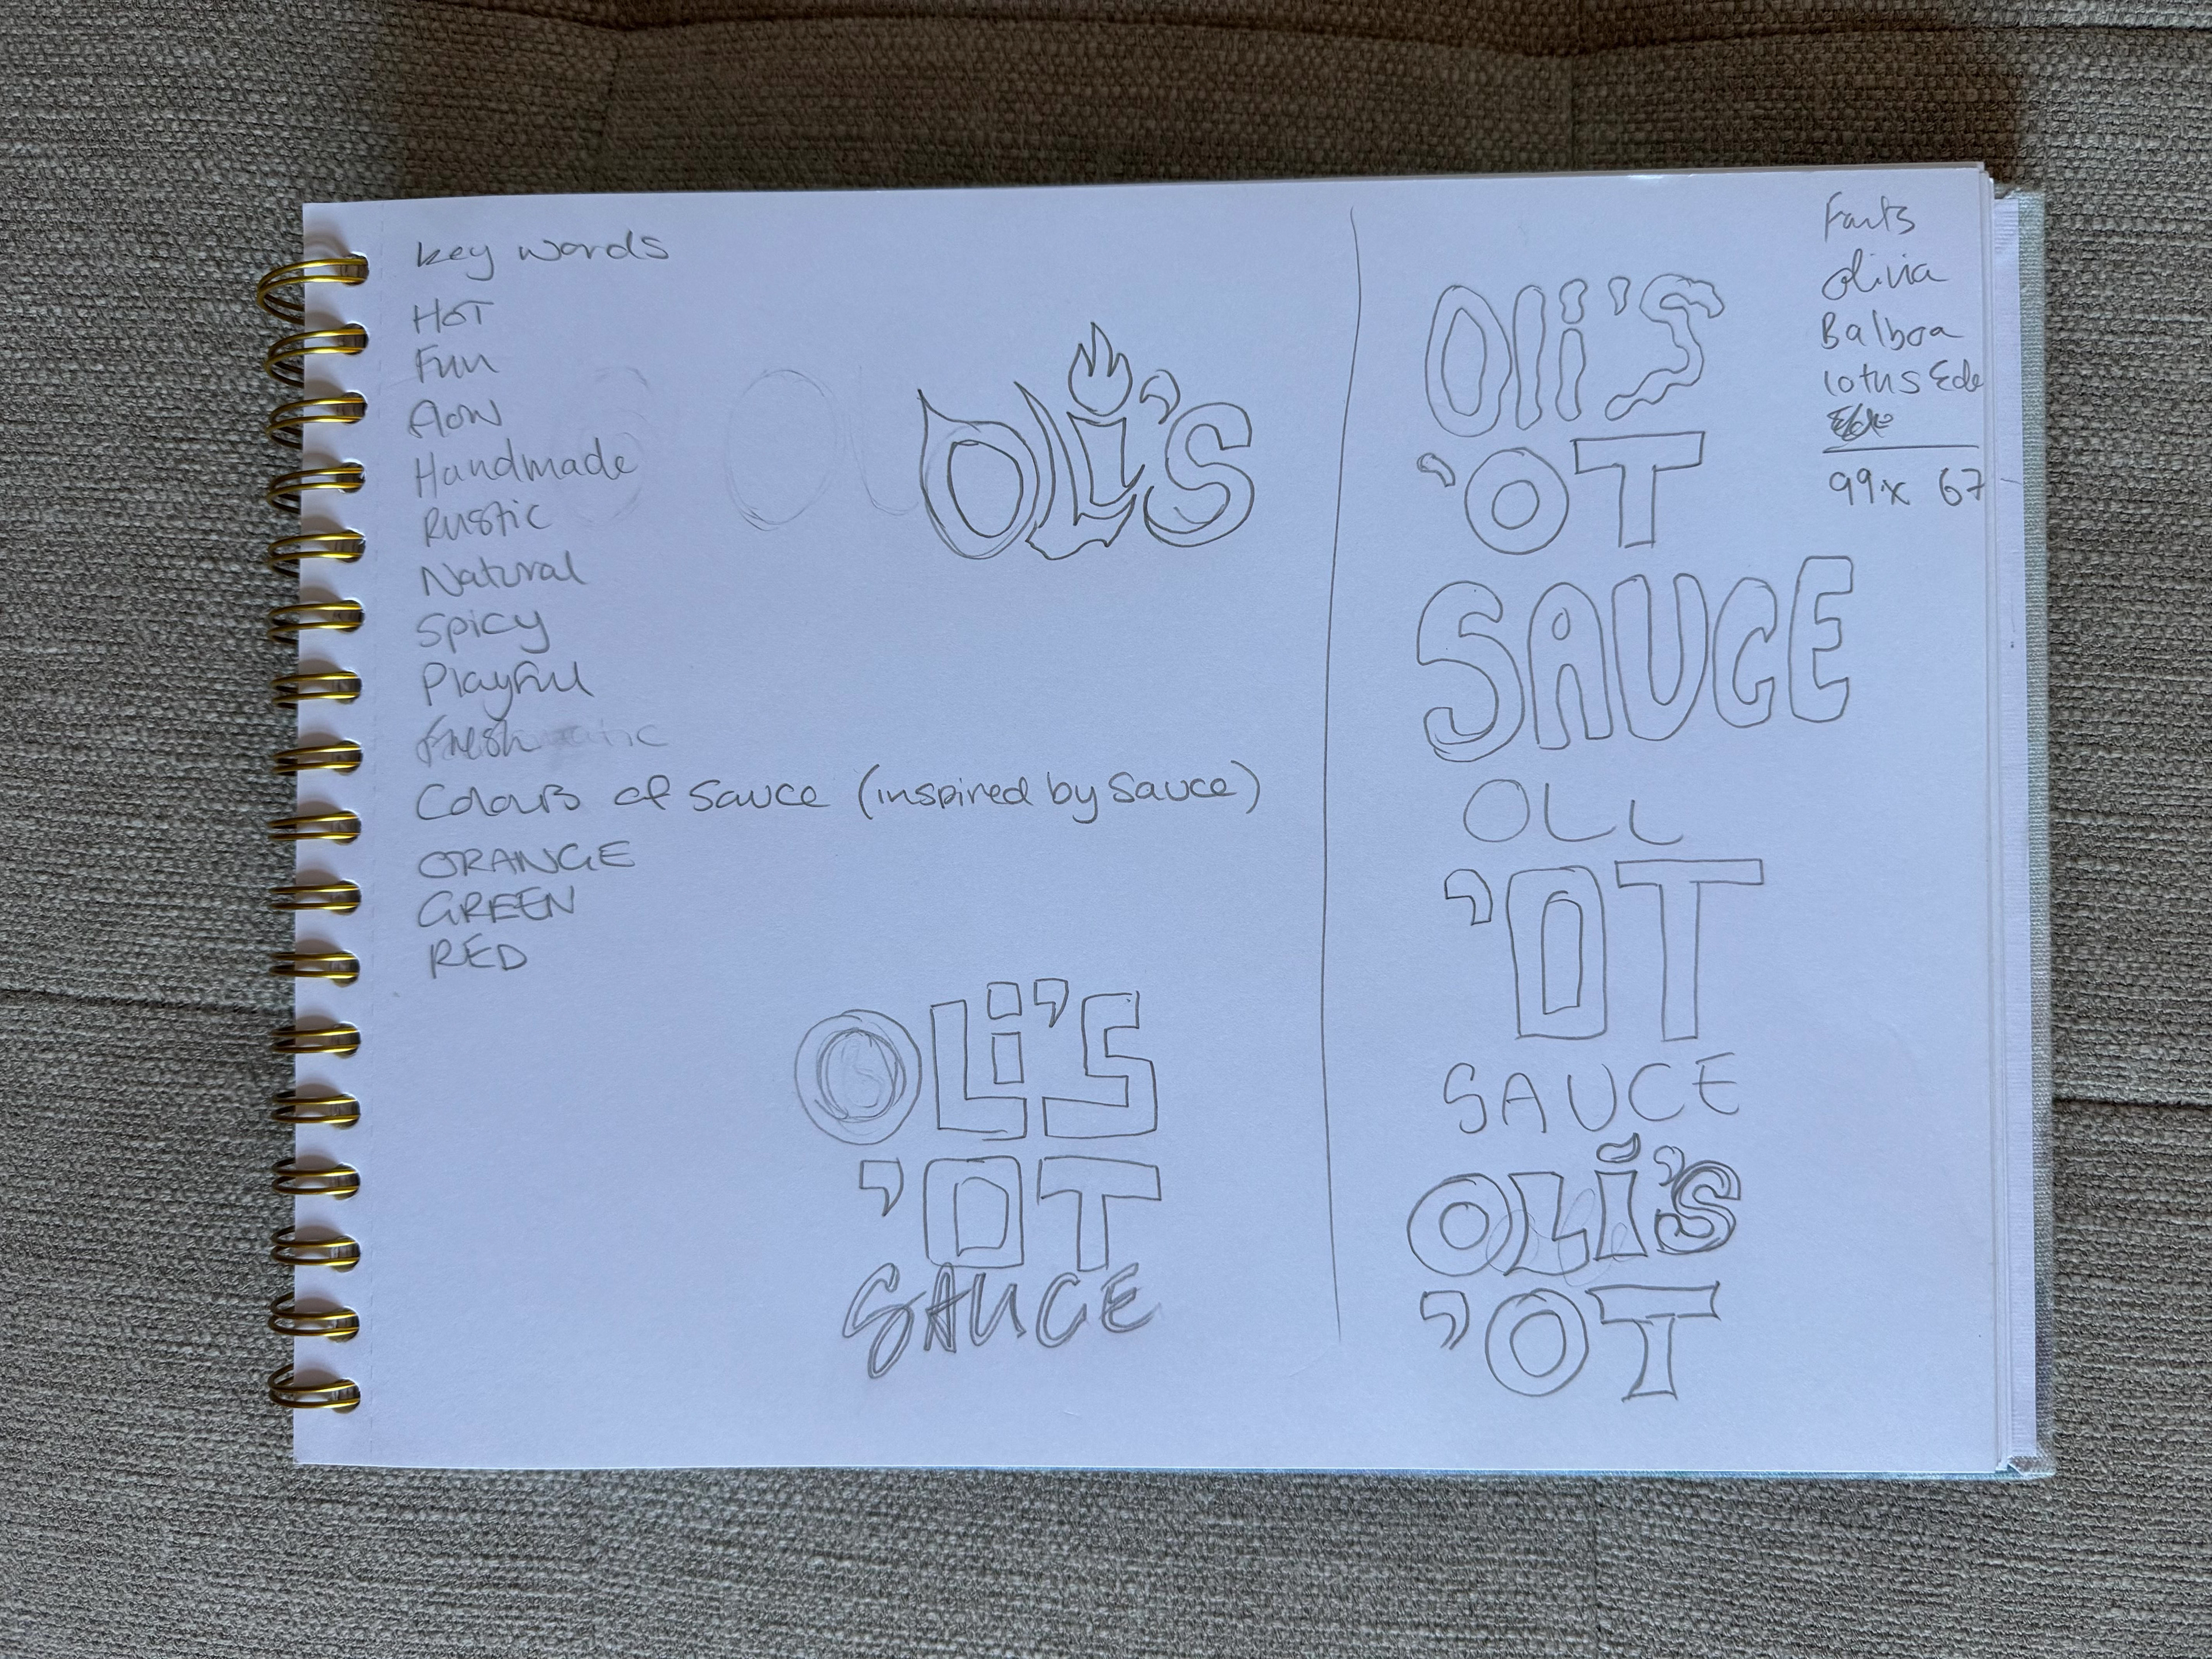 key words
HOT
Fun
flow
Handmade
Rustic
Natural
Spicy
Playful
fresh
Colours of sauce (inspired by sauce)
ORANGE
GREEN
RED
OLi's
OLi'S
'OT
SAUCE
Oli'S
'OT
SAUCE
OLL
'OT
SAUCE
OLi's
'OT
Fonts
Olivia
Balboa
lotus Ede
99x 67